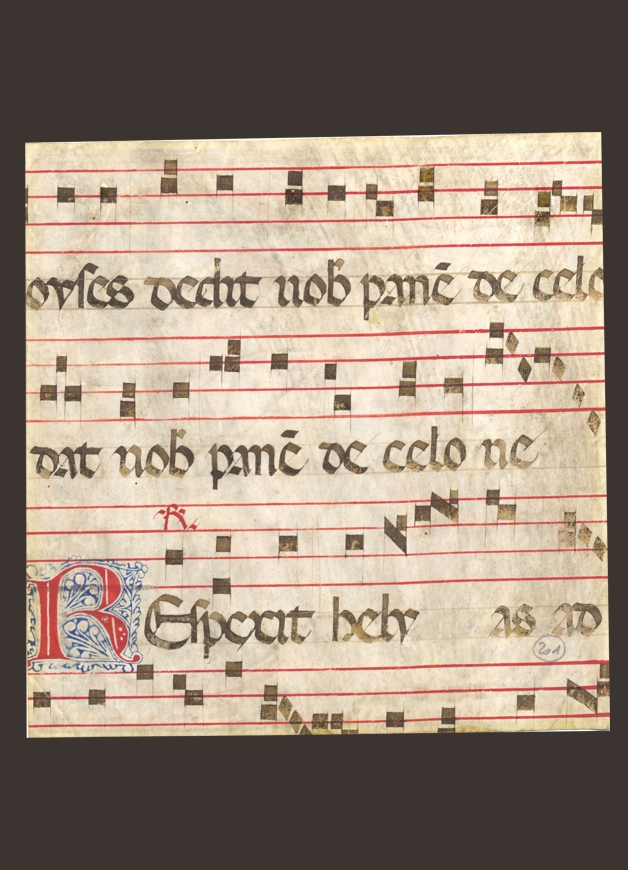 oyses dedit uob̄ panē de celo
dat uob̄ panē de celo ne
R.
REspexit hely as ad
201